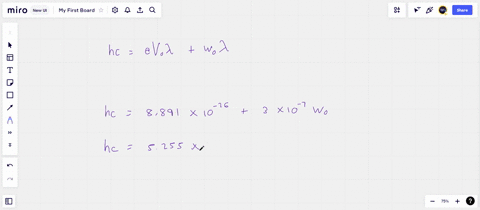 miro New UI My First Board Share
hc = eV₀λ + w₀λ
hc = 8.891 × 10⁻²⁶ + 2 × 10⁻⁷ W₀
hc = 5.255 ×
75%